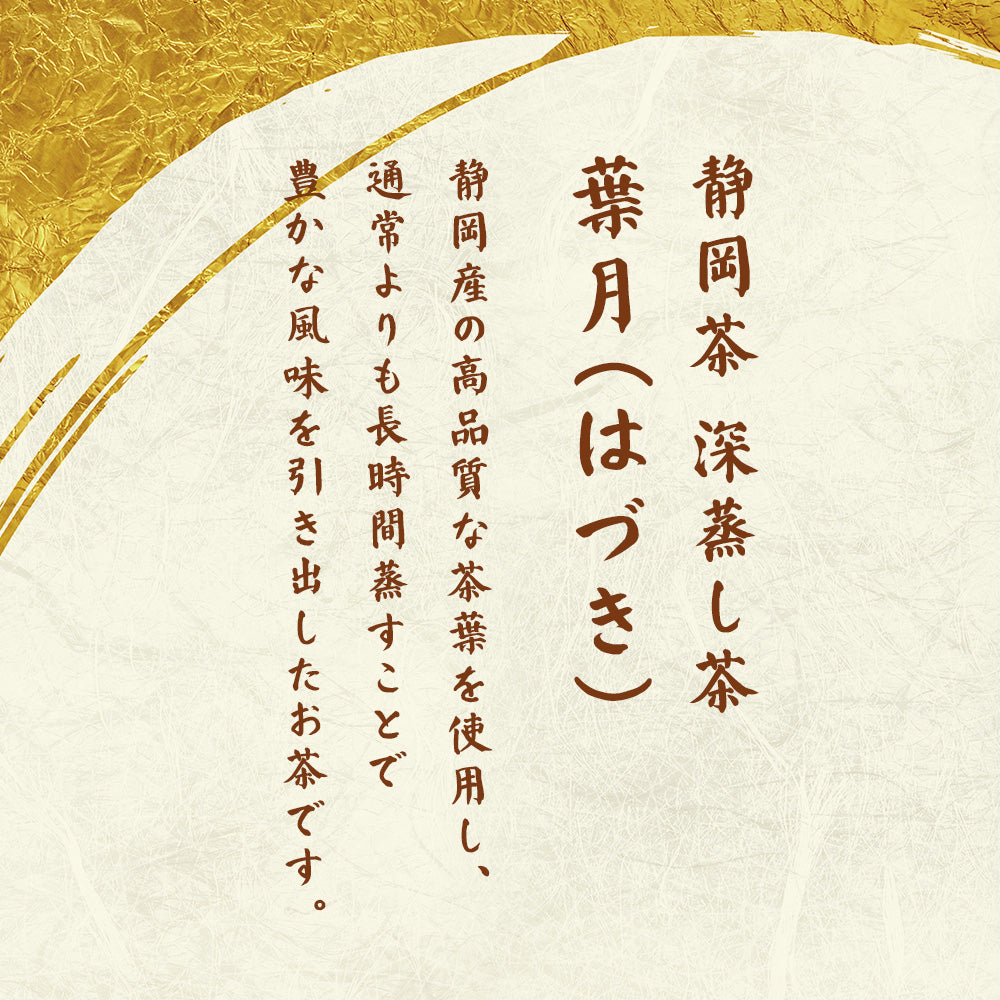 静岡茶 深蒸し茶
葉月（はづき）
静岡産の高品質な茶葉を使用し、
通常よりも長時間蒸すことで
豊かな風味を引き出したお茶です。